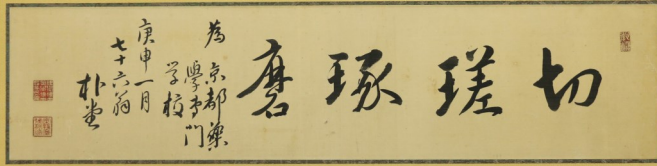 切瑳琢磨
為京都藥
學専門
学校
庚申一月
七十六翁
朴堂